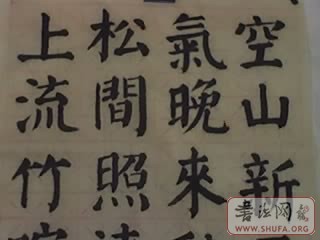 空山新
氣晚來
松間照
上流竹
WWW.SHUFA.ORG